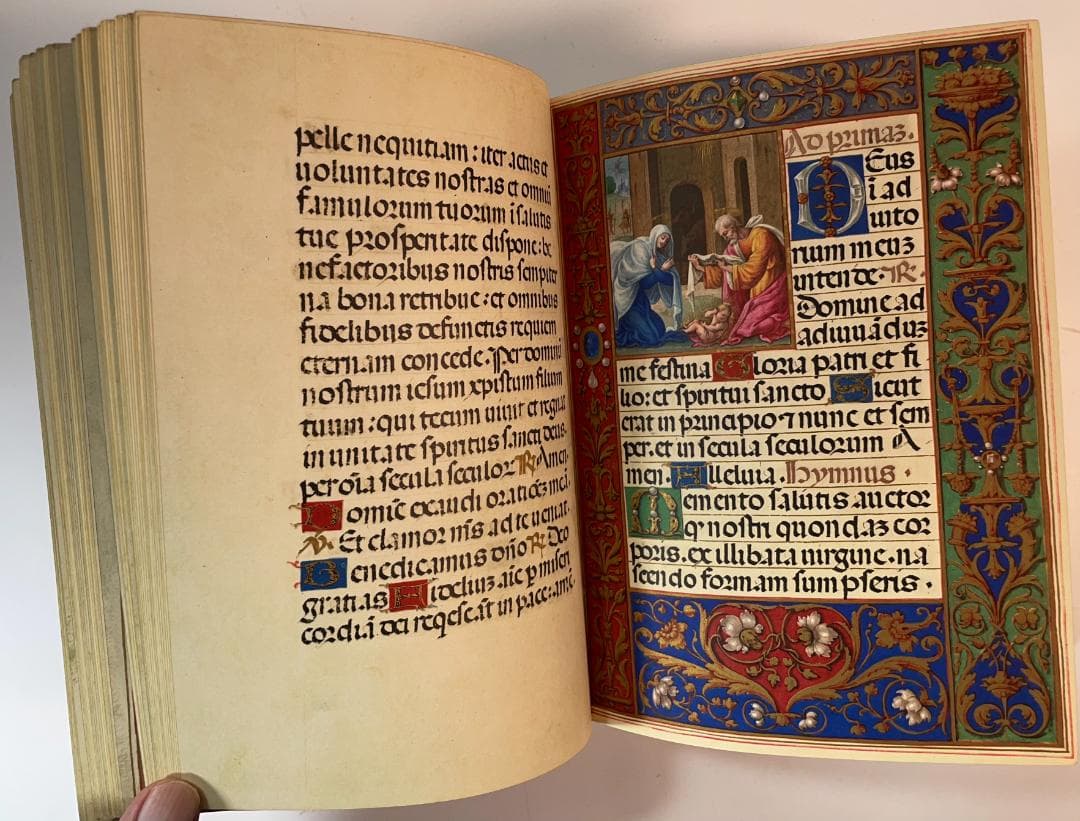 pelle nequitiam : iter actus et
uoluntates nostras et omniū
famulorum tuorum ī salutis
tue prosperitate dispone : be
nefactoribus nostris sempiter
na bona retribue : et omnibus
fidelibus defunctis requiem
eternam concede. Per dominū
nostrum iesum xpistum filium
tuum : qui tecum uiuit et regnat
in unitate spiritus sancti deus.
per oīa secula seculoꝝ ℟ Amen.
Domīe exaudi orationēz meā.
℣. Et clamor m̄s ad te ueniat.
Benedicamus dn̄o ℟ Deo
gratias Fideliuz aīe ꝑ miseri
cordiā dei reqescāt in pace : amē.
Ad primaz.
Deus
ī ad
iuto
rium meuz
intende. ℟.
Domine ad
adiuuādūz
me festina Gloria patri et fi
lio : et spiritui sancto Sicut
erat in principio ⁊ nunc et sem
per. et in secula seculorum A
men. Alleluia. Hymnus.
Memento salutis auctor
qꝫ nostri quondaz cor
poris. ex illibata uirgine. na
scendo formam sumpseris.